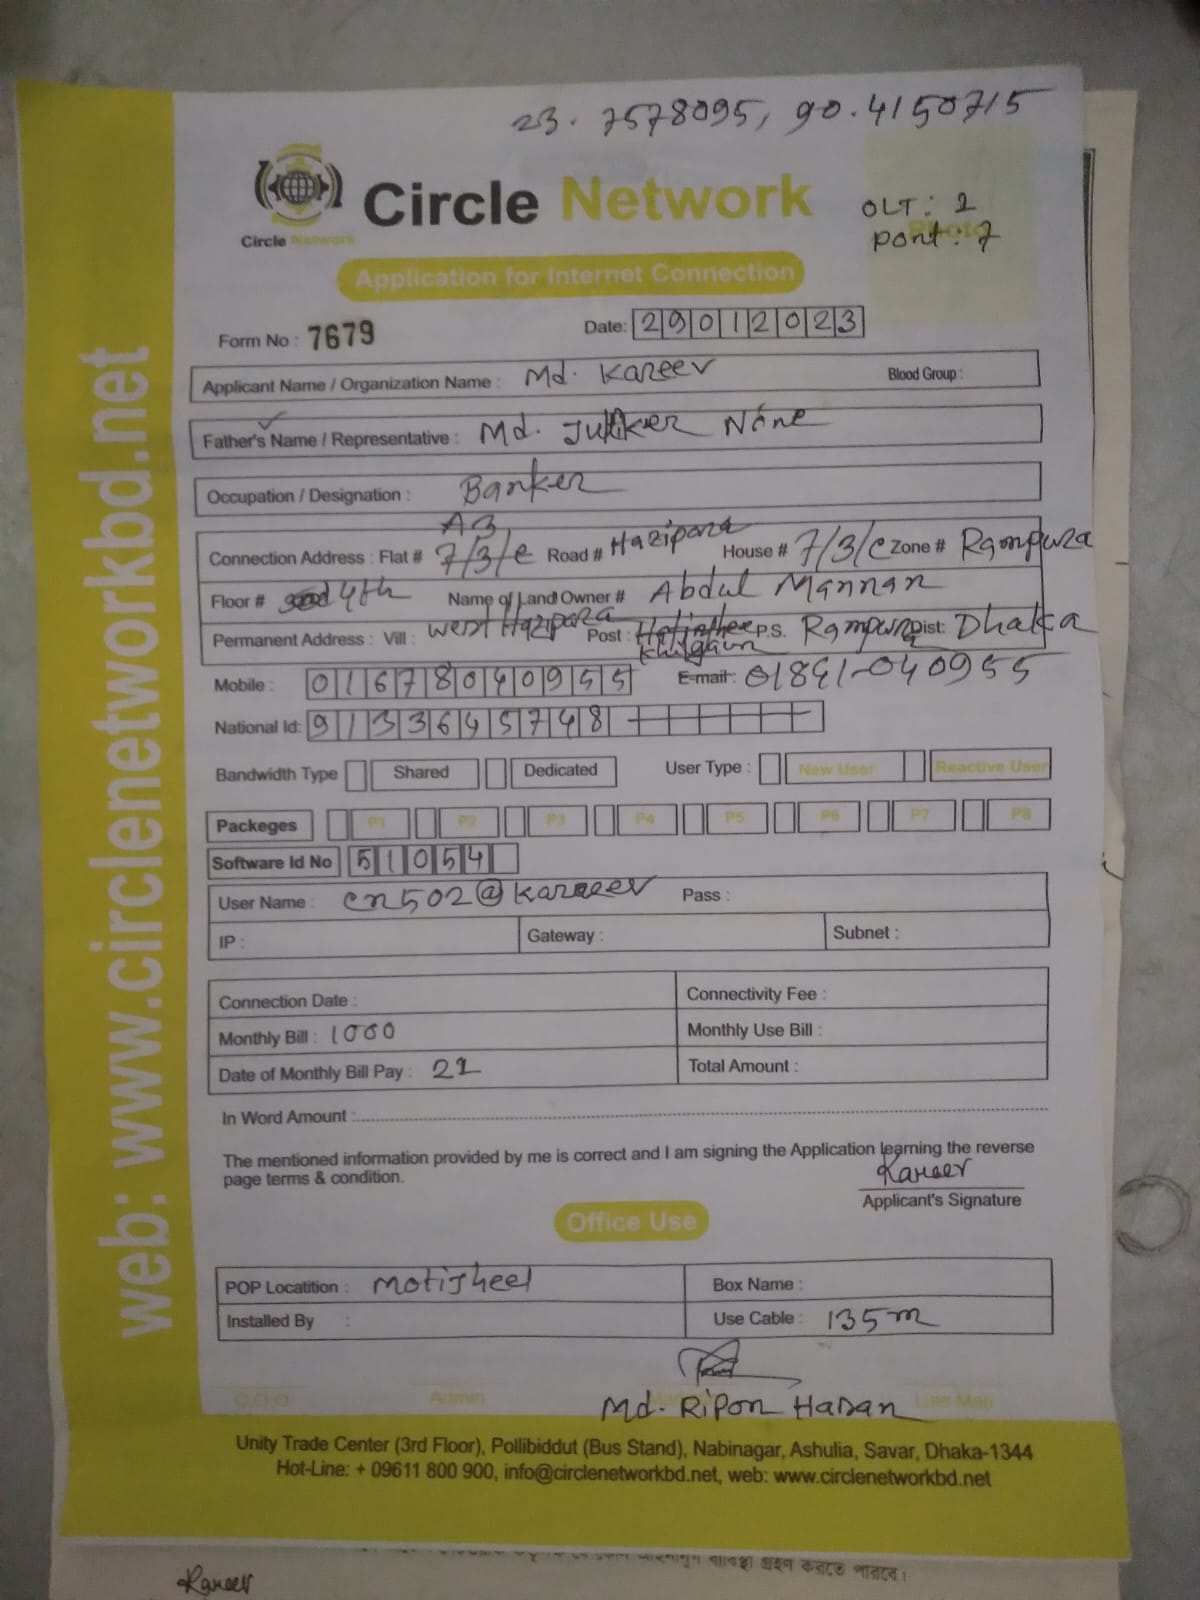 23.7578095, 90.4150715
Circle Network
Circle Network
OLT: 2
Photo
Port: 7
Application for Internet Connection
Form No : 7679 Date: 29012023
Applicant Name / Organization Name : Md. Kareev Blood Group :
Father's Name / Representative : Md.
Occupation / Designation : Banker
A3,
Connection Address : Flat # 7/3/e Road # Hazipara House # 7/3/c Zone # Rampura
Floor # 4th Name of Land Owner # Abdul Mannan
Permanent Address : Vill : West Hazipara Post : Khilgaun P.S. Rampura Dist: Dhaka
Mobile : 01678040955 E-mail: 01841-040955
National Id: 9133645748
Bandwidth Type Shared Dedicated User Type : New User Reactive User
Packeges P1 P2 P3 P4 P5 P6 P7 P8
Software Id No 51054
User Name : cn502@kareev Pass :
IP : Gateway : Subnet :
Connection Date : Connectivity Fee :
Monthly Bill : 1000 Monthly Use Bill :
Date of Monthly Bill Pay : 21 Total Amount :
In Word Amount :
The mentioned information provided by me is correct and I am signing the Application learning the reverse
page terms & condition.
Kareev
Applicant's Signature
Office Use
POP Locatition : Motijheel Box Name :
Installed By : Use Cable : 135m
C.O.O Admin Line Man
Md. Ripon Hasan
Unity Trade Center (3rd Floor), Pollibiddut (Bus Stand), Nabinagar, Ashulia, Savar, Dhaka-1344
Hot-Line: + 09611 800 900, info@circlenetworkbd.net, web: www.circlenetworkbd.net
web: www.circlenetworkbd.net
ব্যবস্থা গ্রহন করতে পারবে।
Kareev